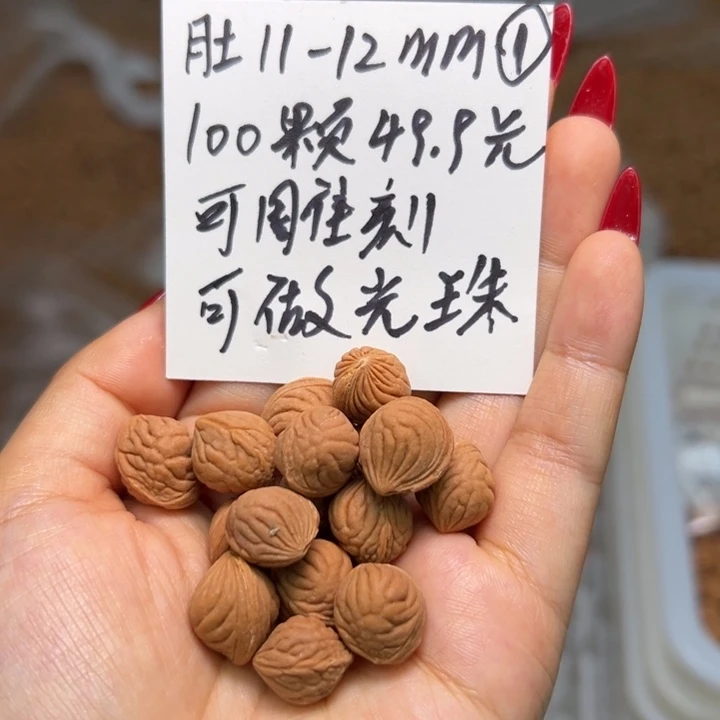 肚11-12mm①
100颗49.9元
可用雕刻
可做光珠